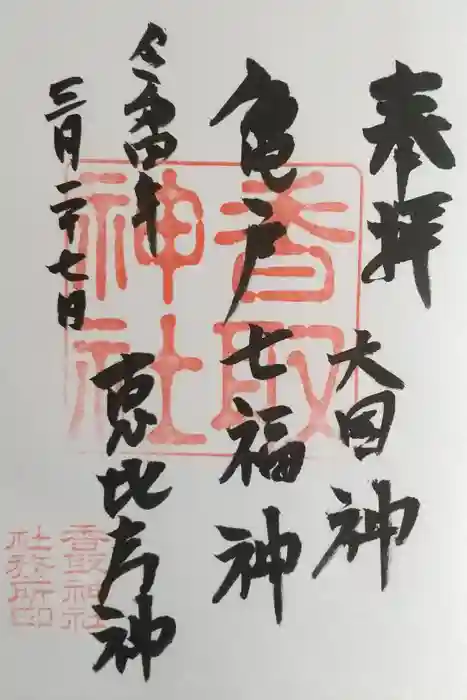 奉拝
大国神
亀戸七福神
恵比寿神
令和四年
三月二十七日
香取神社
香取神社
社務所印